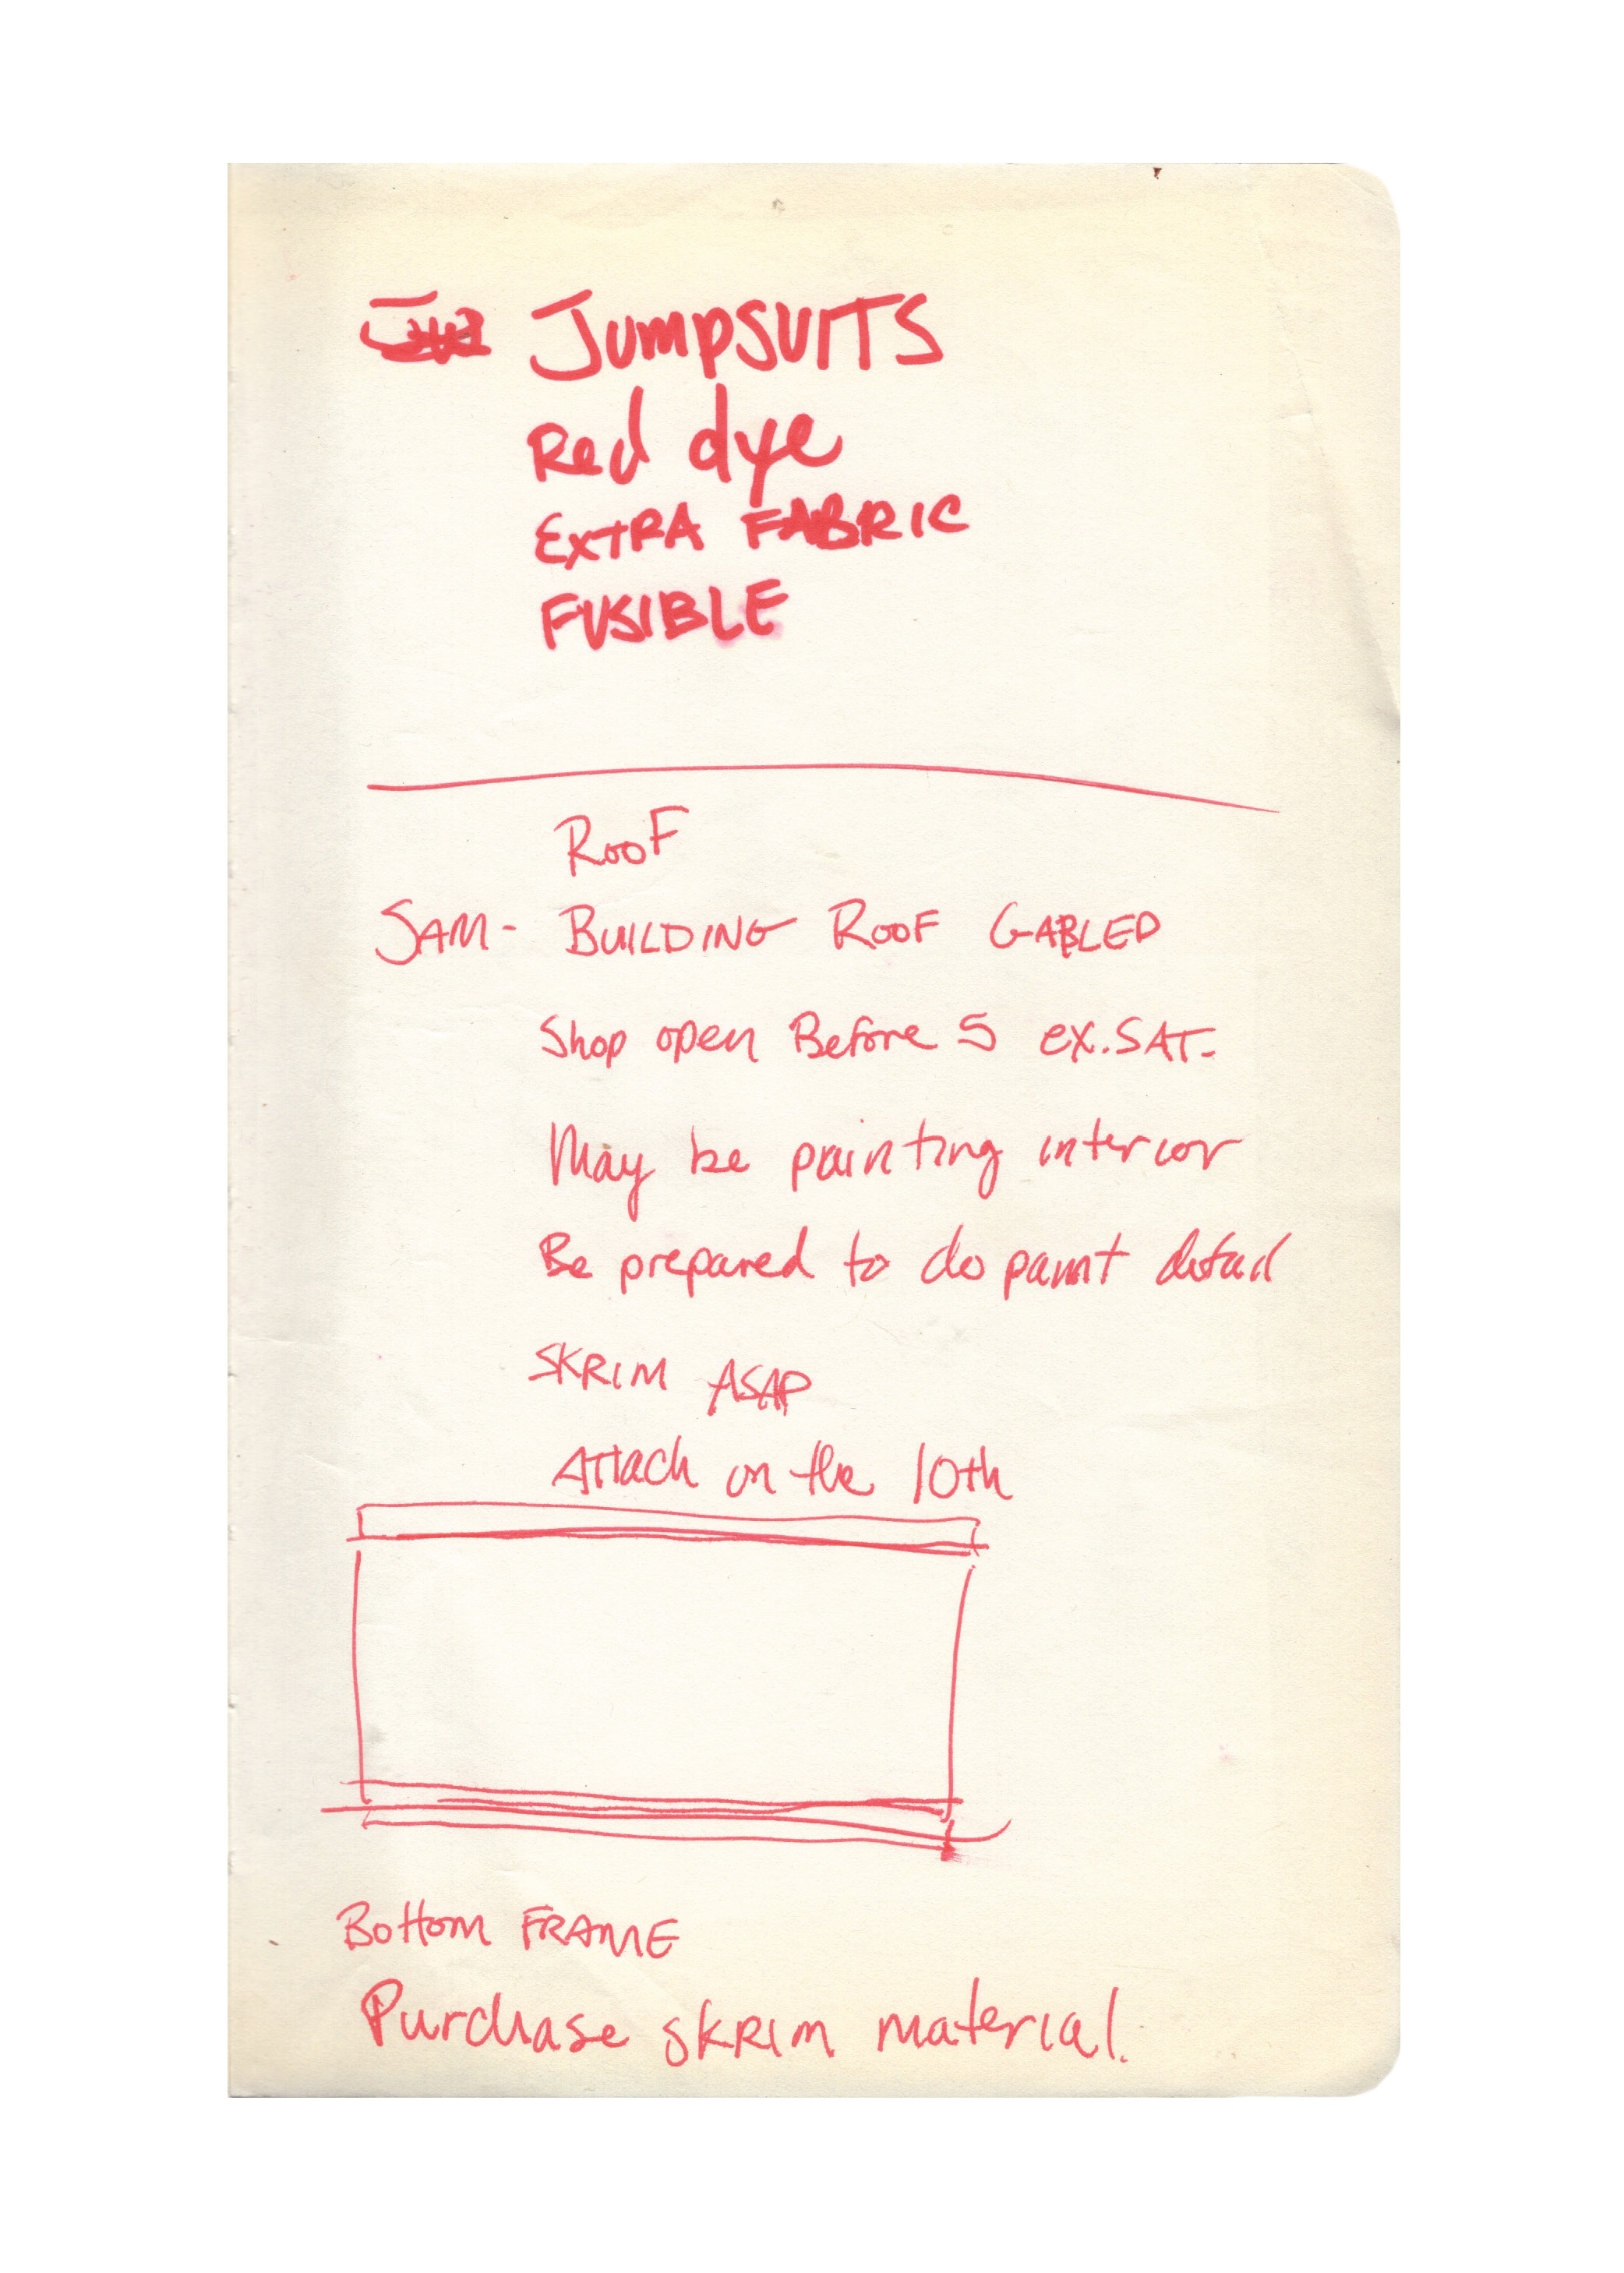 JUMPSUITS
Red dye
EXTRA FABRIC
FUSIBLE
ROOF
SAM - BUILDING ROOF GABLED
Shop open Before 5 ex. SAT.
May be painting interior
Be prepared to do paint detail
SKRIM ASAP
Attach on the 10th
Bottom FRAME
Purchase skrim material.